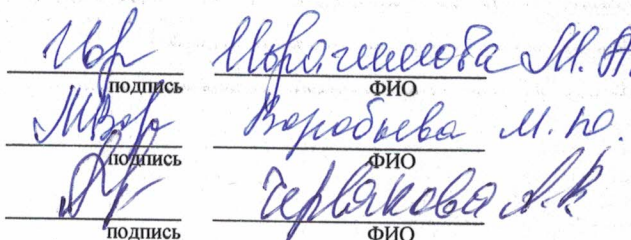 Ибр Ибрагимова М. А.
подпись ФИО
МВор Воробьева М. Ю.
подпись ФИО
Червякова А. К
подпись ФИО